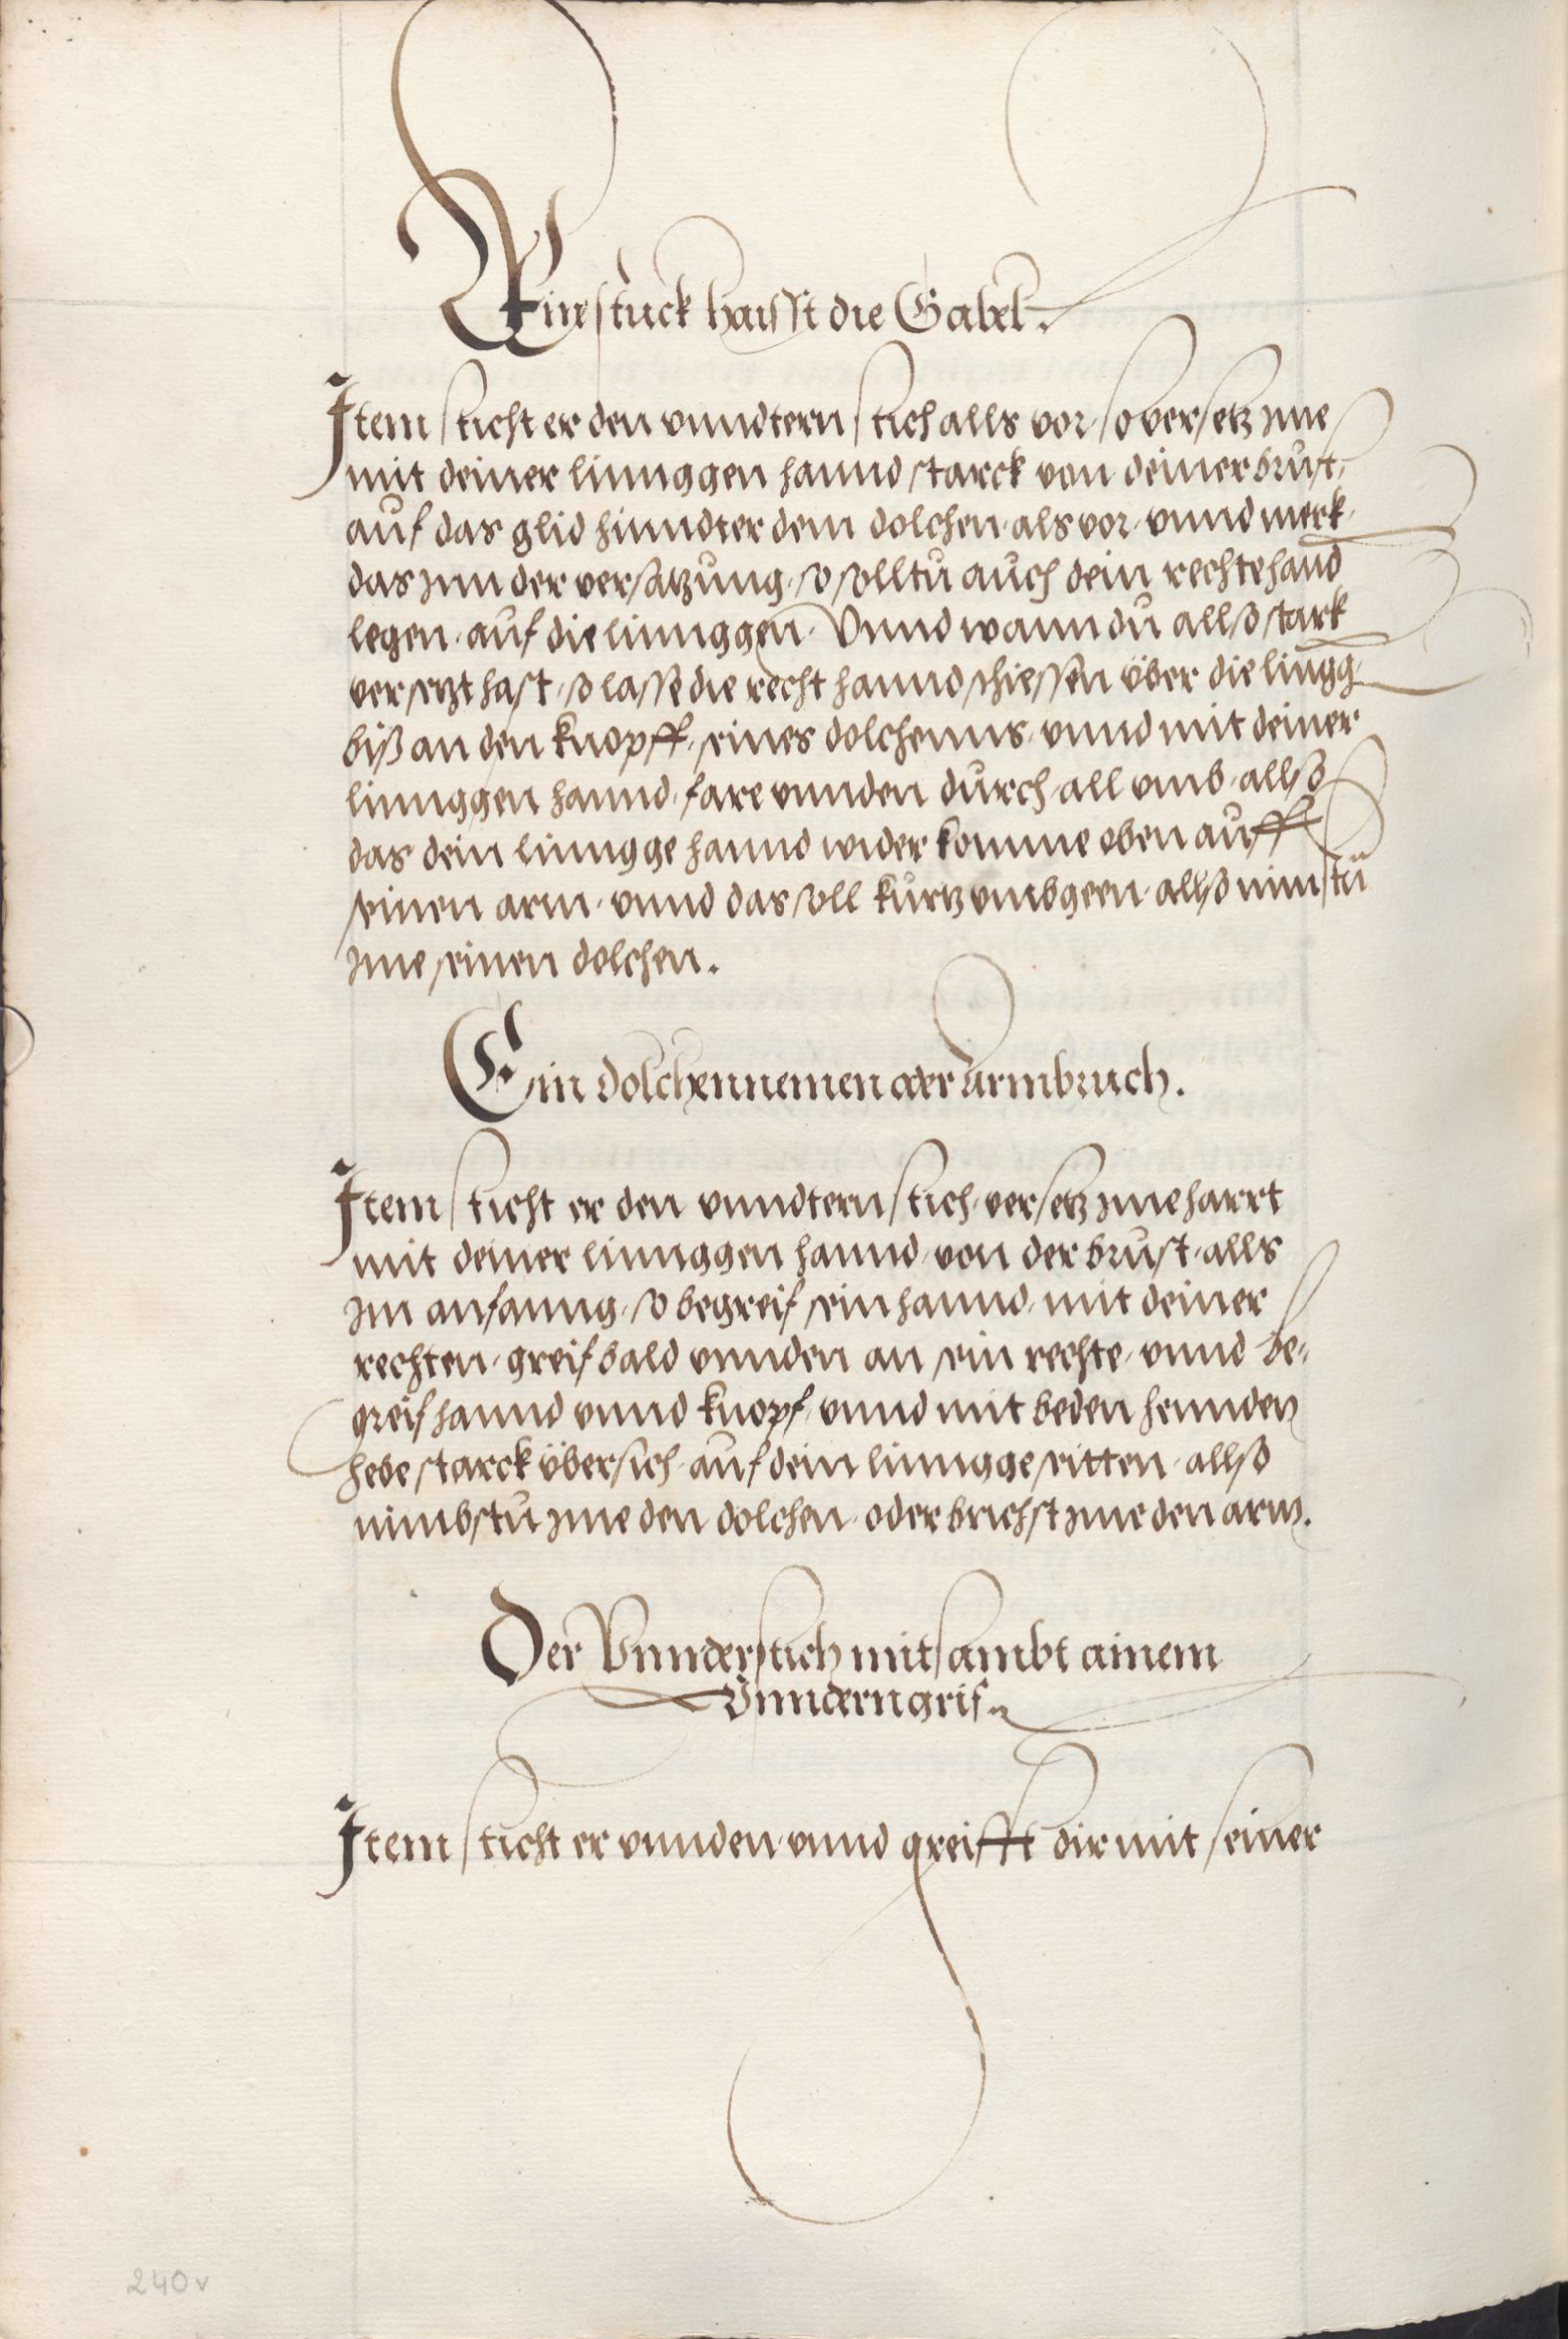 Ain stuck haisst die Gabel.
Item sticht er den vnndtern stich alls vor, so versetz Ime
mit deiner linnggen hannd starck von deiner brust,
auf das glid hinndter dem dolchen, als vor, vnnd merk,
das Inn der versatzung, so solltu auch dein rechte hand
legen, auf die linnggen, Vnnd wann du allso stark
versetzt hast, so lasse die recht hannd schiessen über die lingg,
biß an den knopff, seines dolchenns, vnnd mit deiner
linnggen hannd, fare vnnden durch, all vmb, allso
das dein linngge hannd wider komme oben auff
seinen arm, vnnd das soll kurtz vmbgeen, allso nimstu
Ime seinen dolchen.
Ein dolchennemen oder armbruch.
Item sticht er den vnndtern stich, versetz Ime harrt
mit deiner linnggen hannd, von der brust, alls
Im anfanng, so begreif sein hannd, mit deiner
rechten, greif bald vnnden an sein rechte, vnnd be-
greif hannd vnnd knopf, vnnd mit beden hennden
hebe starck übersich, auf dein linngge seitten, allso
nimbstu Ime den dolchen, oder brichst Ime den arm.
Der Vnnderstich mitsambt ainem
Vnnderngrif
Item sticht er vnnden, vnnd greifft dir mit seiner
240v